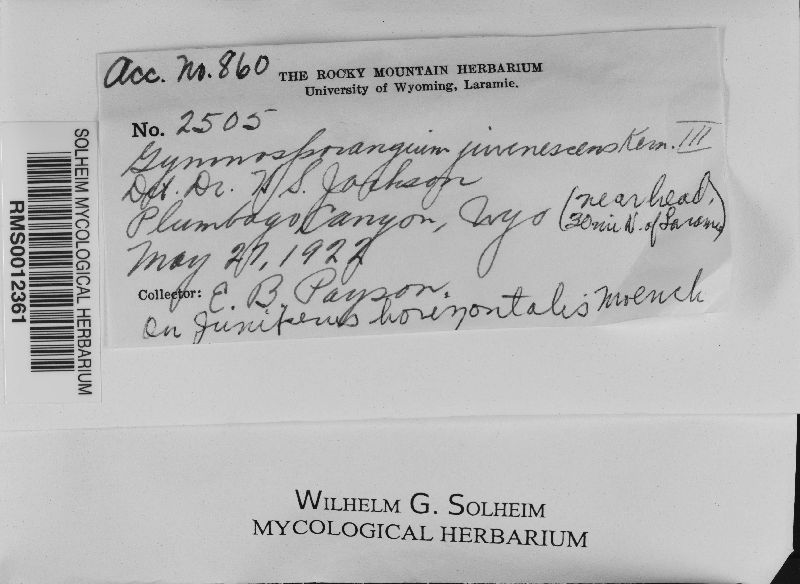 Acc. No. 860
THE ROCKY MOUNTAIN HERBARIUM
University of Wyoming, Laramie.
No. 2505
Gymnosporangium juvenescens Kern. III
Det. Dr. H. S. Jackson
Plumbago Canyon, Wyo (near head,
30 mi N. of Laramie)
May 27, 1922
Collector: E. B. Payson.
On Juniperus horizontalis Moench
SOLHEIM MYCOLOGICAL HERBARIUM
RMS0012361
WILHELM G. SOLHEIM
MYCOLOGICAL HERBARIUM